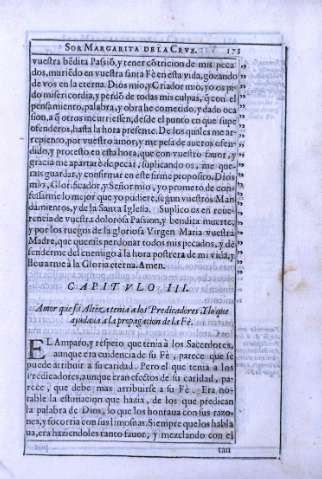 SOR MARGARITA DE LA CRVZ. 175
vuestra bẽdita Passiõ, y tener cõtricion de mis peca
dos, muriẽdo en vuestra santa Fè en esta vida, gozando
de vos en la eterna. Dios mio, y Criador mio, yo os pi
do misericordia, y perdõ de todas mis culpas, q̃ con el
pensamiento, palabra, y obra he cometido, y dado oca
sion, a q̃ otros incurriessen, desde el punto en que supe
ofenderos, hasta la hora presente. De los quales me ar-
repiento, por vuestro amor, y me pesa de aueros ofen-
dido, y protesto en esta hora, que con vuestro fauor, y
gracia me apartarè de pecar; suplicando os, me que-
rais guardar, y confirmar en este firme proposito. Dios
mio, Glorificador, y Señor mio, yo prometo de con-
fessarme lo mejor que yo pudiere, segun vuestros Man-
damientos, y de la Santa Iglesia. Suplico os en reue-
rencia de vuestra dolorosa Passion, y bendita muerte,
y por los ruegos de la gloriosa Virgen Maria vuestra
Madre, que querais perdonar todos mis pecados, y de-
fenderme del enemigo à la hora postrera de mi vida, y
lleuarme à la Gloria eterna. Amen.
CAPITVLO III.
Amor que su Alteza tenia a los Predicadores. Y lo que
ayudaua a la propagacion de la Fè.
EL Amparo, y respeto que tenia à los Sacerdotes,
aunque era euidencia de su Fè, parece que se
puede atribuir a su caridad. Pero el que tenia a los
Predicadores, aunque eran efectos de su caridad, pa-
rece, que debe mas atribuirse a su Fè. Era no-
table la estimacion que hazia, de los que predican
la palabra de Dios, lo que los honraua con sus razo-
nes, y socorria con sus limosnas. Siempre que los habla
ua, era haziendoles tanto fauor, y mezclando con el
tan